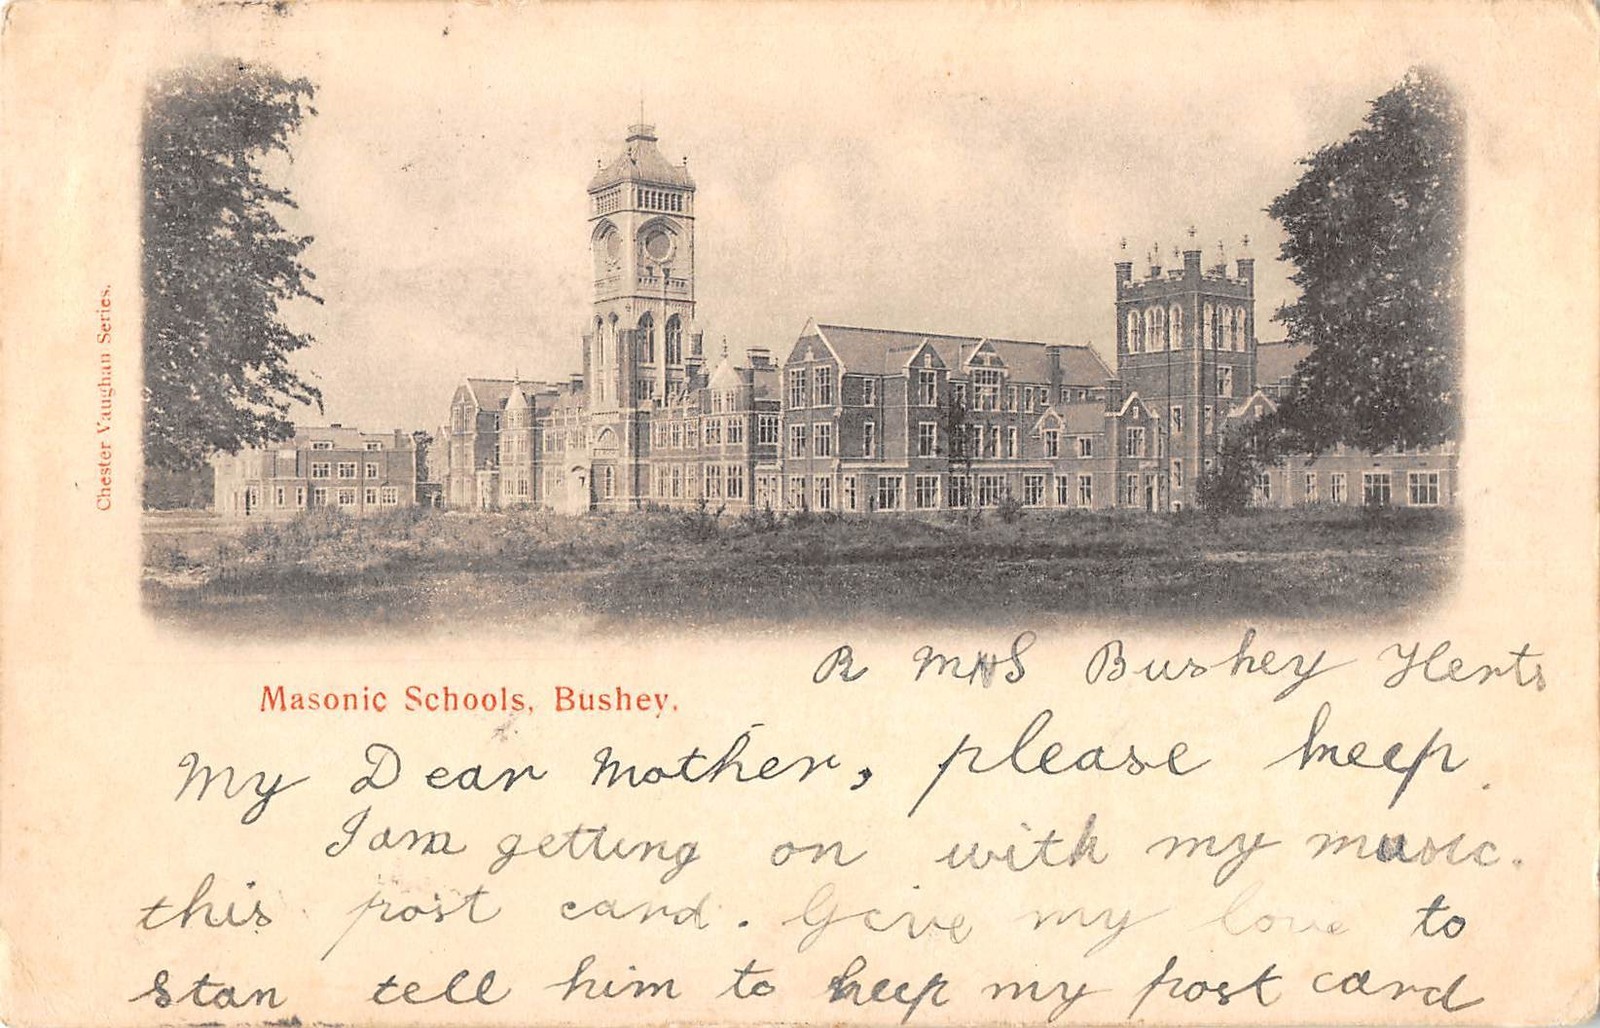 Chester Vaughan Series.
Masonic Schools, Bushey.
R M S Bushey Herts
My Dear Mother, please keep
I am getting on with my music.
this post card. Give my love to
Stan tell him to keep my post card